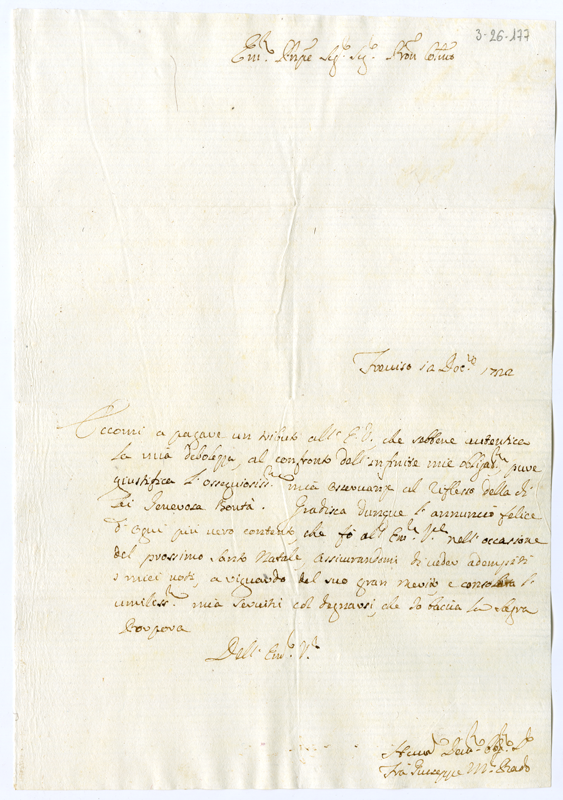 3-26-177
Em.º Prnpe Sig.r Sig.r Pron Col.mo
Treviso 12 Dec.ro 1722
Eccomi a pagare un tributo all' E. V. che sebbene autentica
la mia debolezza, al confronto dell' infinite mie obligat.ni pure
giustifica l' ossequiosiss.ma mia osservanza al riflesso della di
Lei Generosa Bontà. Gradisca dunque l' annuncio felice
d' ogni più vero contento che fò all' Em.za V.ra nell' occasione
del prossimo Santo Natale, assicurandomi di veder adempiti
i miei voti, a riguardo del suo gran merito e consolata l'
umiliss.ma mia Servitù col degnarsi, che Io baccia la Sagra
Porpora
Dell' Em.za V.ra
Fra Giuseppe M.a Prado